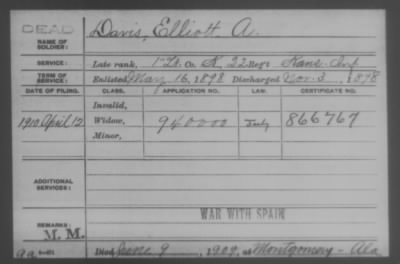 DEAD
NAME OF SOLDIER: Davis, Elliott A.
SERVICE: Late rank, 1" Lt. Co. K, 22 Reg't Kans. Inf
TERM OF SERVICE: Enlisted May 16, 1898 Discharged Nov. 3, 1898
DATE OF FILING. CLASS. APPLICATION NO. LAW. CERTIFICATE NO.
Invalid,
1910 April 12 Widow, 940000 866767
Minor,
ADDITIONAL SERVICES:
WAR WITH SPAIN
REMARKS:
M. M.
Died June 9, 1909, at Montgomery - Ala